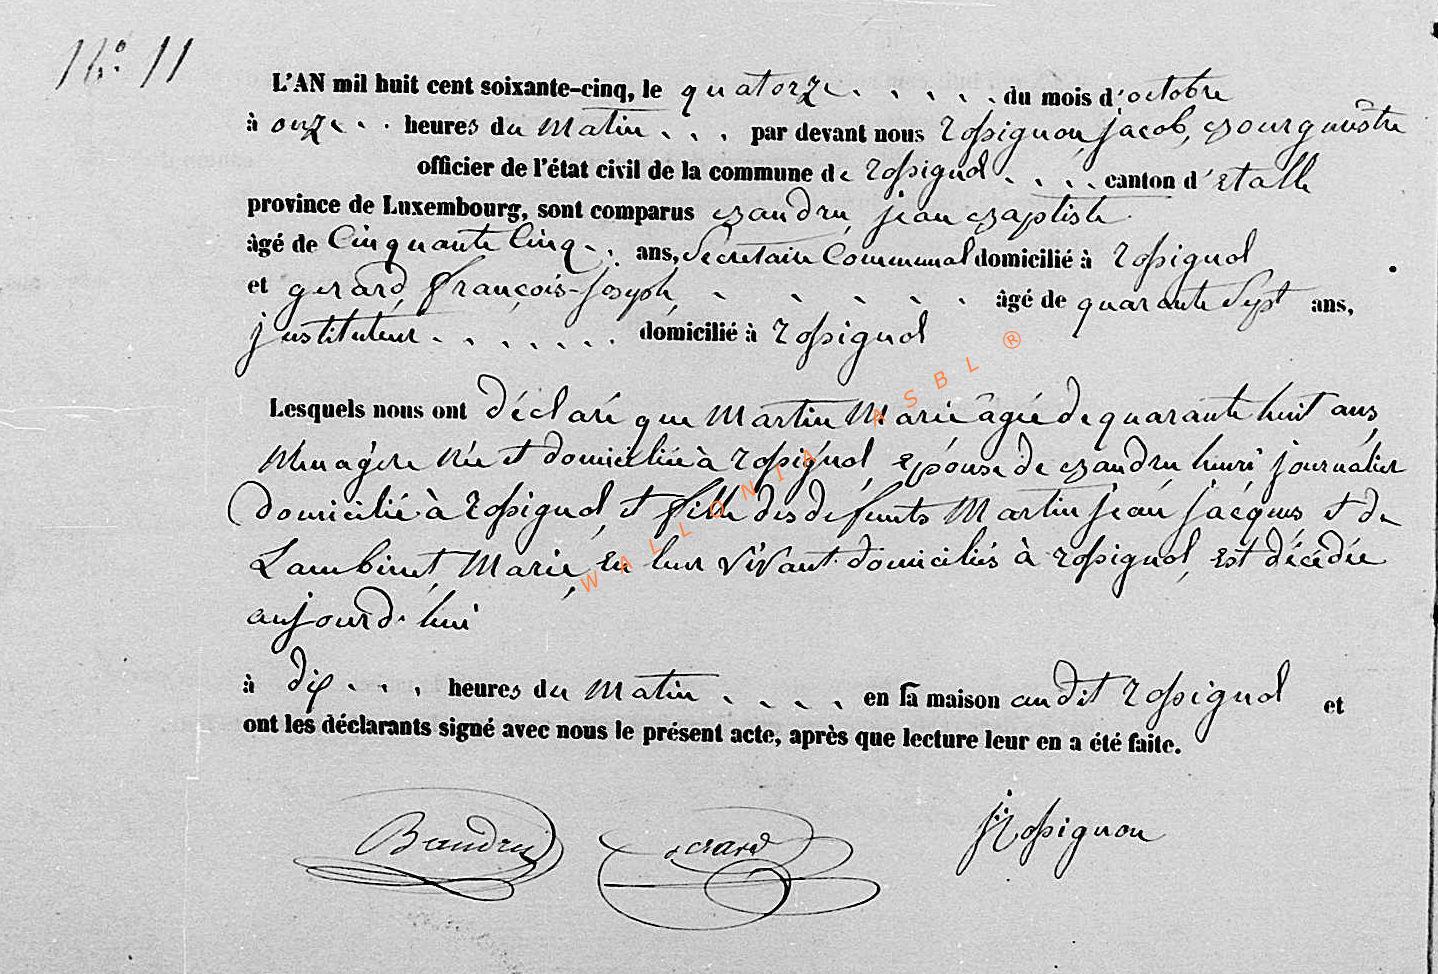 N.° 11
L'AN mil huit cent soixante-cinq, le quatorze . . . . . du mois d'octobre
à onze . . heures du matin . . . par devant nous Rossignon, jacob, Bourguestre
officier de l'état civil de la commune de Rossignol . . . . canton d'Etalle
province de Luxembourg, sont comparus Baudru, jean Baptiste
âgé de Cinquante Cinq . . ans, Secretaire Communal domicilié à Rossignol
et gerard, françois-joseph, . . . . . âgé de quarante Sept ans,
instituteur . . . . . . . domicilié à Rossignol
Lesquels nous ont déclaré que Martin Marie âgée de quarante huit ans,
Menagère Née et domiciliée à Rossignol, Epouse de Baudru henri journalier
domicilié à Rossignol, et fille des defunts Martin jean jacques et de
Lambinet, Marie, En leur vivant domiciliés à Rossignol, Est décédée
aujourd'hui
à dix . . . heures du Matin . . . . en sa maison audit Rossignol et
ont les déclarants signé avec nous le présent acte, après que lecture leur en a été faite.
Baudru Gerard J. Rossignon
WALLONIA ASBL ®